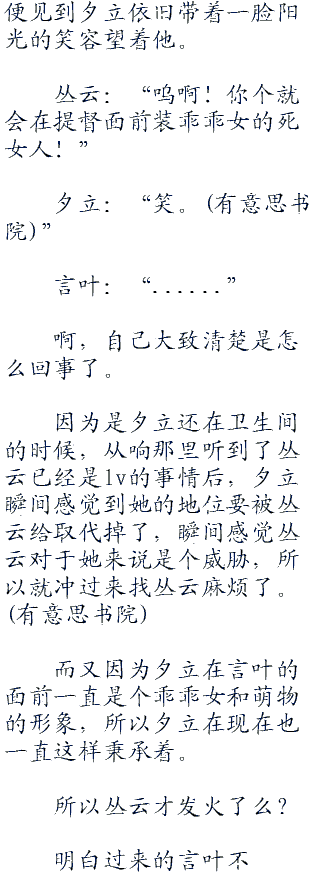 便见到夕立依旧带着一脸阳
光的笑容望着他。
丛云：“呜啊！你个就
会在提督面前装乖乖女的死
女人！”
夕立：“笑。(有意思书
院)”
言叶：“......”
啊，自己大致清楚是怎
么回事了。
因为是夕立还在卫生间
的时候，从响那里听到了丛
云已经是lv的事情后，夕立
瞬间感觉到她的地位要被丛
云给取代掉了，瞬间感觉丛
云对于她来说是个威胁，所
以就冲过来找丛云麻烦了。
(有意思书院)
而又因为夕立在言叶的
面前一直是个乖乖女和萌物
的形象，所以夕立在现在也
一直这样秉承着。
所以丛云才发火了么？
明白过来的言叶不